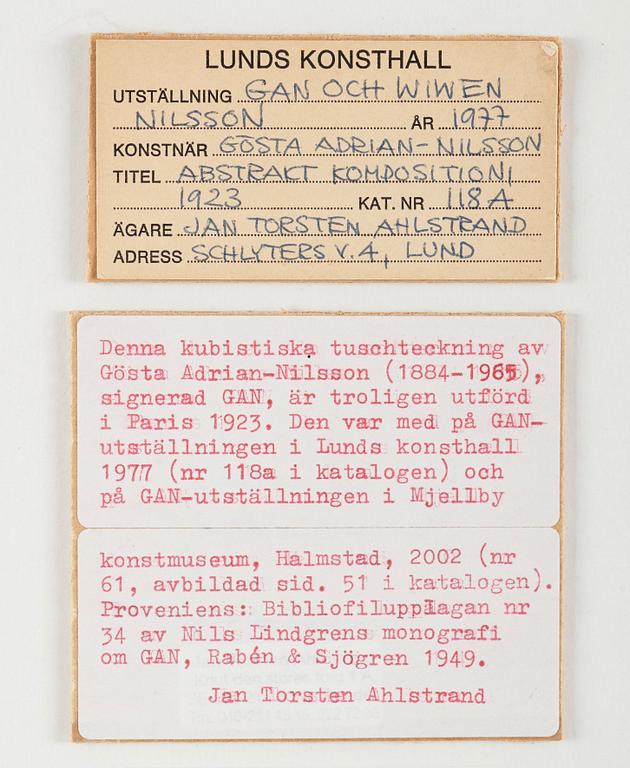 LUNDS KONSTHALL
UTSTÄLLNING GAN OCH WIWEN
NILSSON ÅR 1977
KONSTNÄR GÖSTA ADRIAN-NILSSON
TITEL ABSTRAKT KOMPOSITION,
1923 KAT. NR 118A
ÄGARE JAN TORSTEN AHLSTRAND
ADRESS SCHLYTERS V. 4, LUND
Denna kubistiska tuschteckning av
Gösta Adrian-Nilsson (1884-1965),
signerad GAN, är troligen utförd
i Paris 1923. Den var med på GAN-
utställningen i Lunds konsthall
1977 (nr 118a i katalogen) och
på GAN-utställningen i Mjellby
konstmuseum, Halmstad, 2002 (nr
61, avbildad sid. 51 i katalogen).
Proveniens: Bibliofilupplagan nr
34 av Nils Lindgrens monografi
om GAN, Rabén & Sjögren 1949.
Jan Torsten Ahlstrand